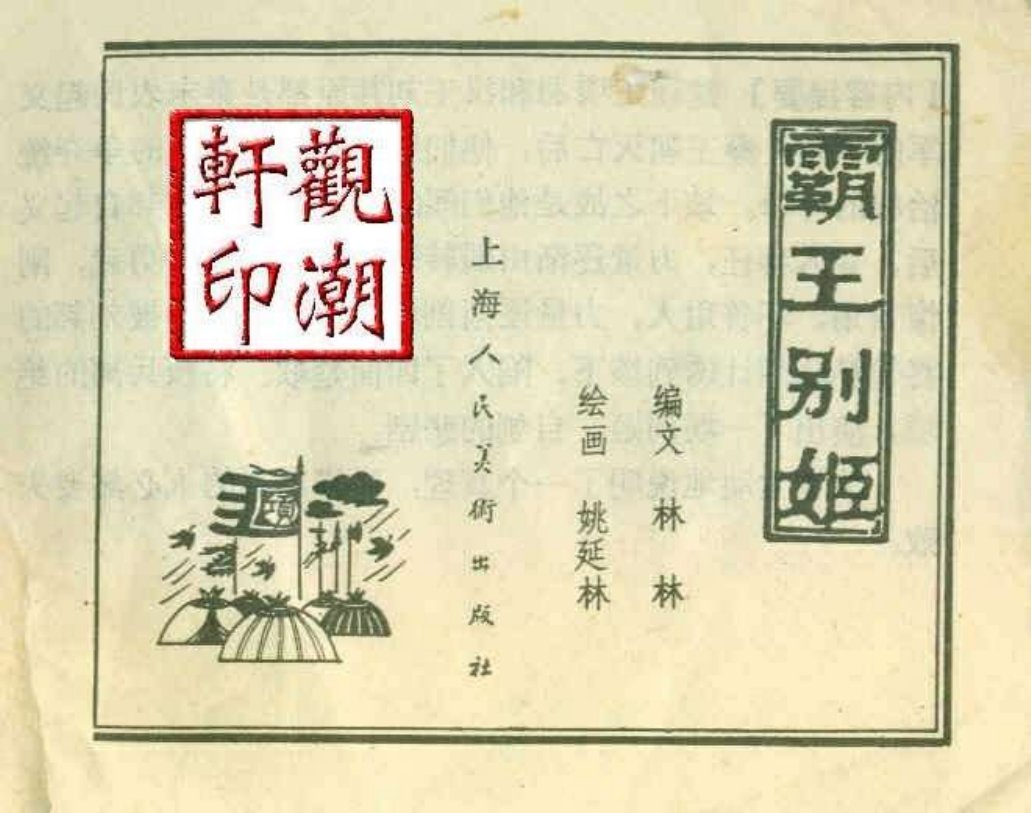 霸王别姬
编文 林 林
绘画 姚延林
上海人民美術出版社
觀潮
軒印
項